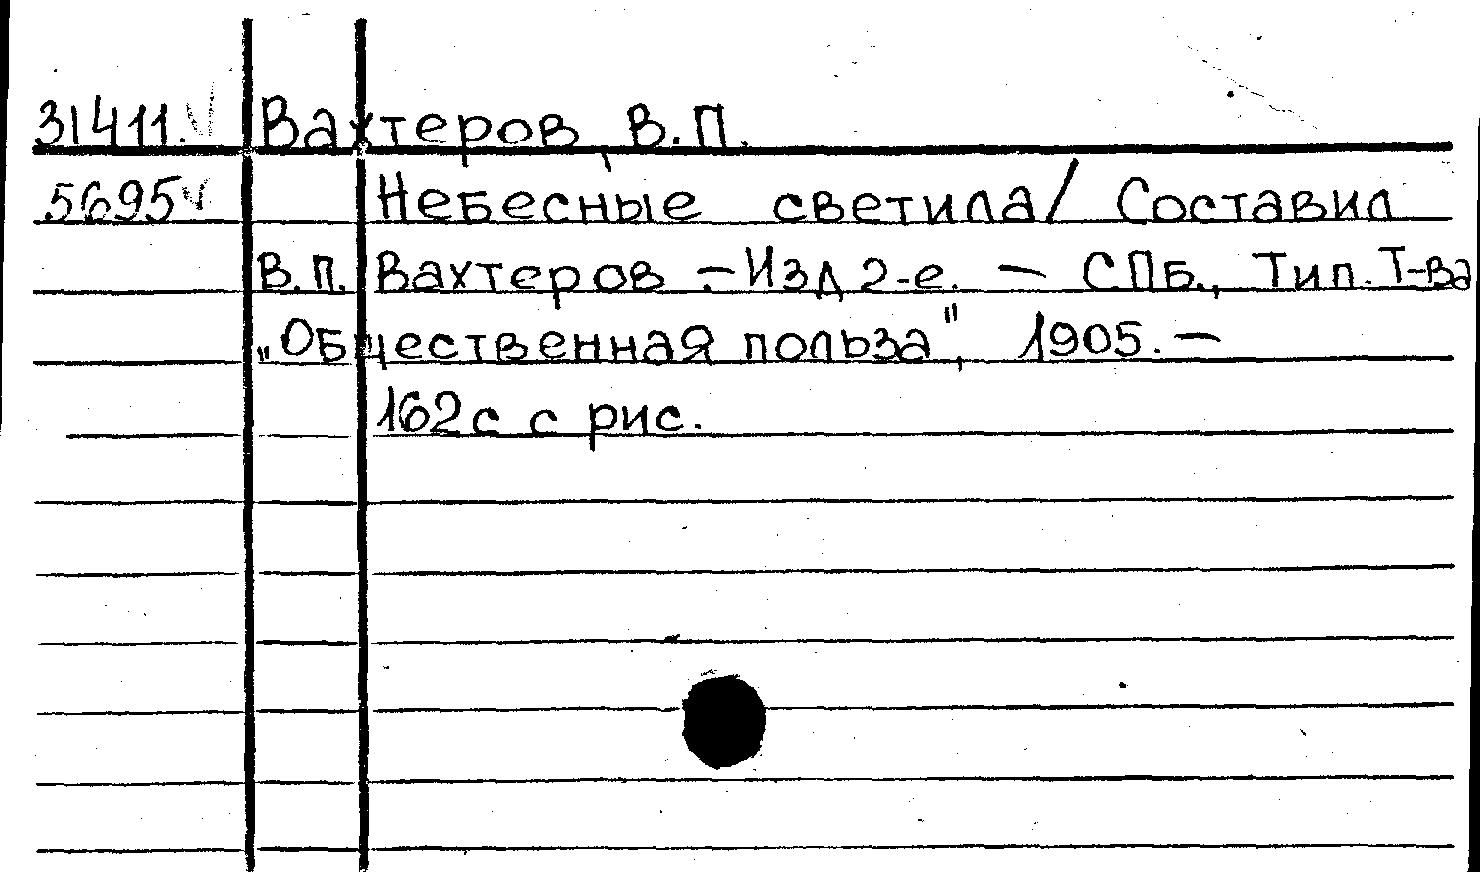 31411. Вахтеров, В.П.
5695 Небесные светила/ Составил
В.П. Вахтеров. – Изд 2-е. – СПБ., Тип. Т-ва
„Общественная польза", 1905. –
162с с рис.